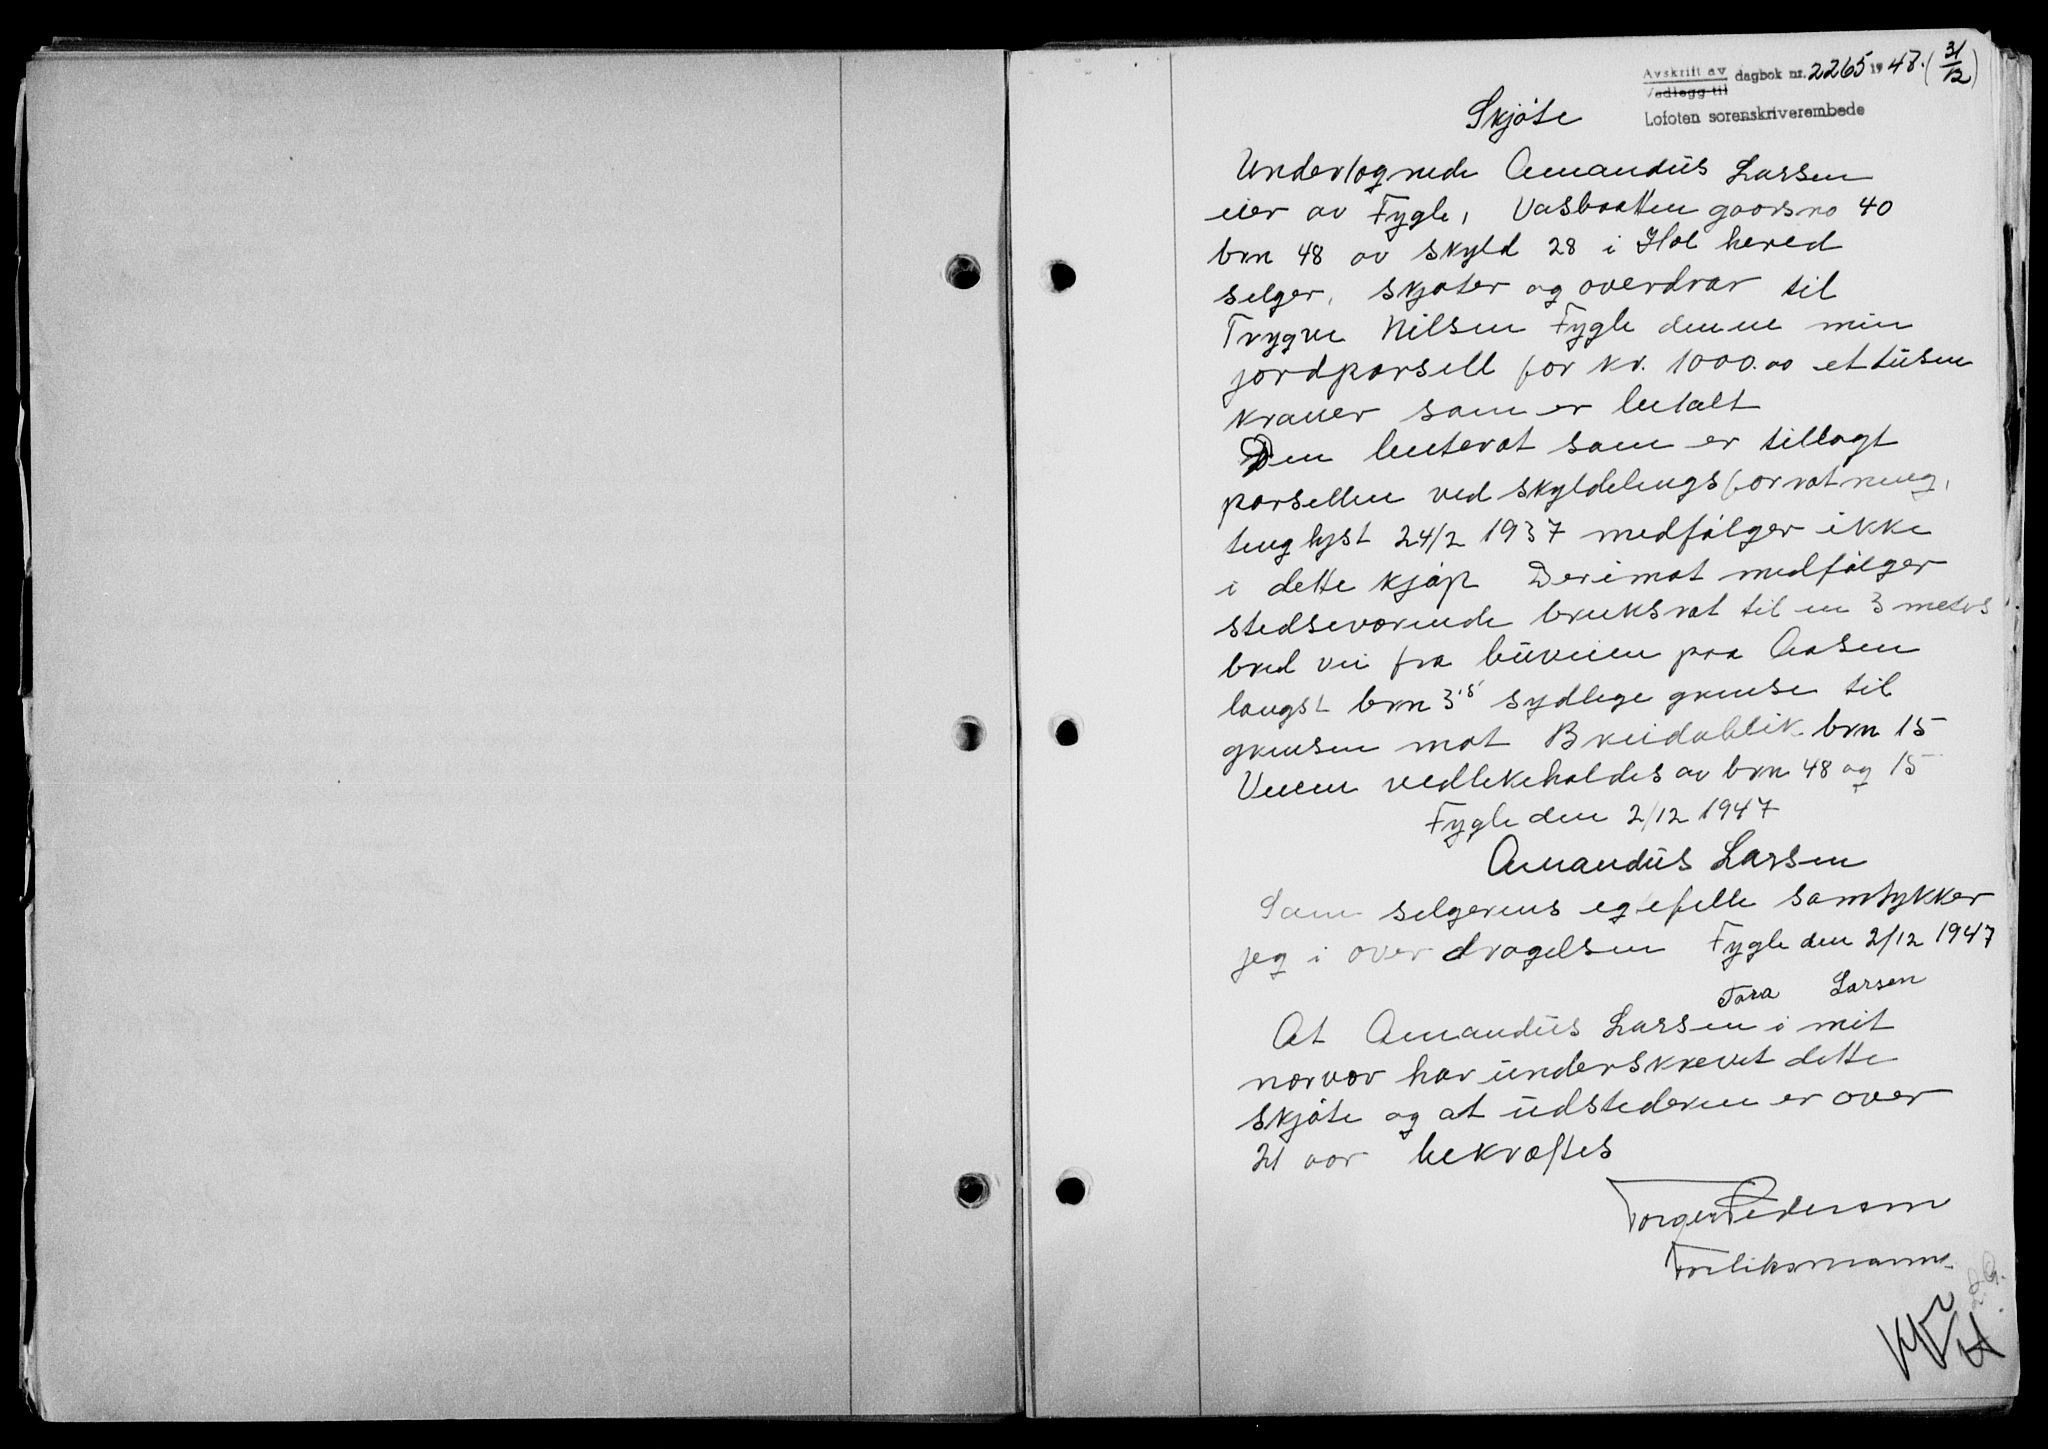 Avskrift av dagbok nr. 2265 1947. (31/12)
Vedlegg til
Lofoten sorenskriverembede
Skjøte
Undertegnede Amandus Larsen
eier av Fygle, Vasbaatten gaarsno 40
brn 48 av skyld 28 i Hol hered
selger, skjøter og overdrar til
Trygve Nilsen Fygle denne min
jordparsell for kr. 1000.00 ettusen
kroner som er betalt
Den beiteret som er tillagt
parsellen ved skyldelingsforretning,
tinglyst 24/2 1937 medfølger ikke
i dette kjøp Derimot medfølger
stedseværende bruksret til en 3 meters
bred vei fra biiveien paa Aasen
langst brn 3's sydlige grense til
grensen mot Breidablik brn 15
Veien vedlikeholdes av brn 48 og 15
Fygle den 2/12 1947
Amandus Larsen
Som selgerens egtefelle samtykker
jeg i overdragelsen Fygle den 2/12 1947
Tora Larsen
At Amandus Larsen i mit
nærvær har underskrevet dette
skjøte og at udstederen er over
21 aar bekræftes
Torger Pedersen
Forliksmann